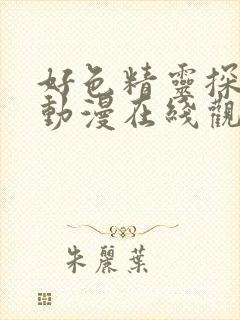 好色精靈探
動漫在綫觀
朱麗葉